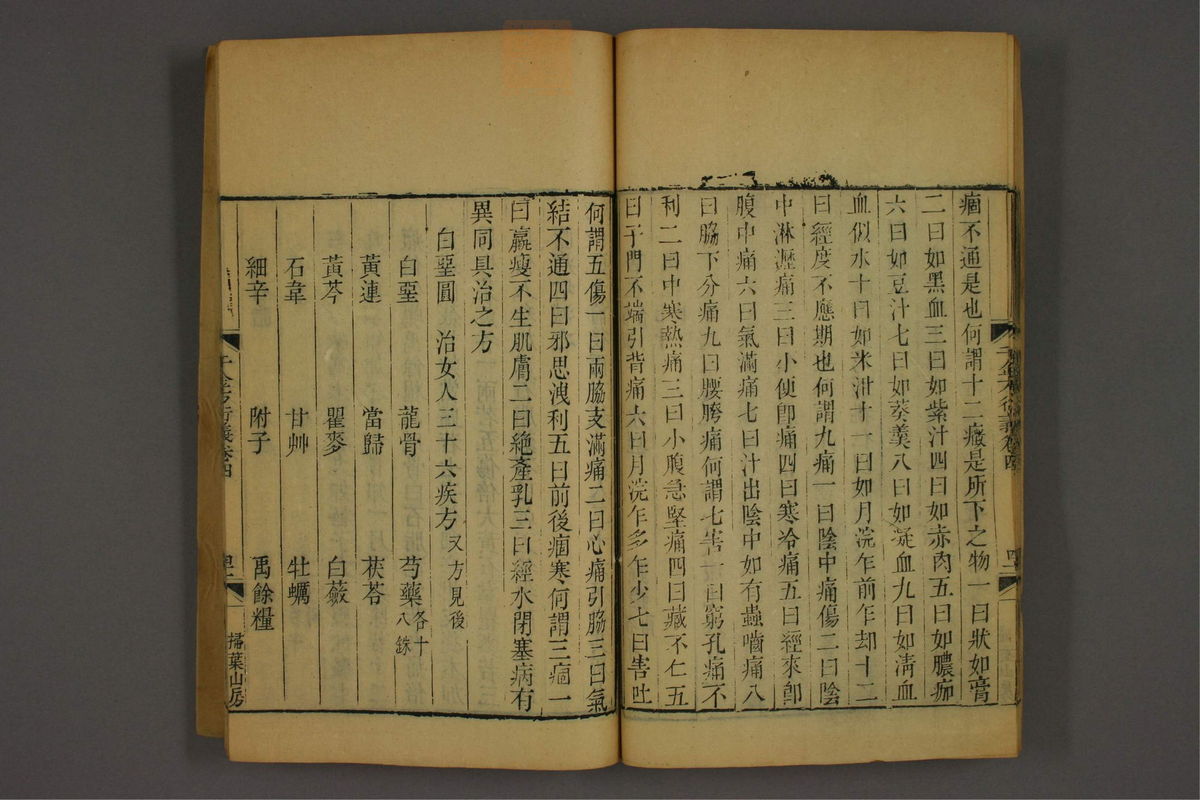 痼不通是也何謂十二癥是所下之物一曰狀如膏
二曰如黑血三曰如紫汁四曰如赤肉五曰如膿痂
六曰如豆汁七曰如葵羹八曰如凝血九曰如淸血
血似水十曰如米泔十一曰如月浣乍前乍却十二
曰經度不應期也何謂九痛一曰陰中痛傷二曰陰
中淋瀝痛三曰小便卽痛四曰寒冷痛五曰經來卽
腹中痛六曰氣滿痛七曰汁出陰中如有蟲嚙痛八
曰脇下分痛九曰腰胯痛何謂七害一曰窮孔痛不
利二曰中寒熱痛三曰小腹急堅痛四曰藏不仁五
曰子門不端引背痛六曰月浣乍多乍少七曰害吐
何謂五傷一曰兩脇支滿痛二曰心痛引脇三曰氣
結不通四曰邪思洩利五曰前後痼寒何謂三痼一
曰羸瘦不生肌膚二曰絶產乳三曰經水閉塞病有
異同具治之方
白堊圓 治女人三十六疾方又方見後
白堊 龍骨 芍藥各十八銖
黃連 當歸 茯苓
黃芩 瞿麥 白蘞
石韋 甘艸 牡蠣
細辛 附子 禹餘糧
千金方衍義卷四
掃葉山房